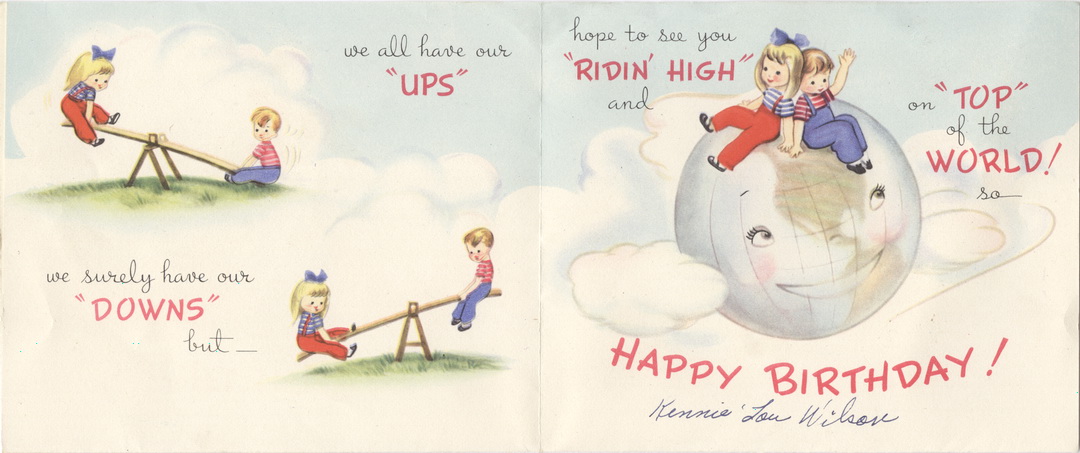 we all have our
"UPS"
we surely have our
"DOWNS"
but—
hope to see you
"RIDIN' HIGH"
and
on "TOP"
of the
WORLD!
so—
HAPPY BIRTHDAY!
Kennie Lou Wilson